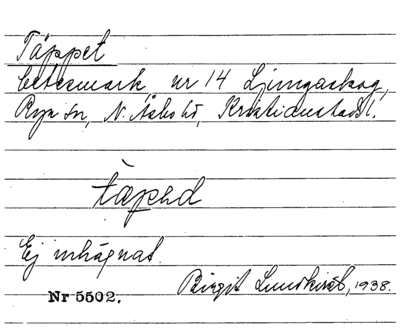 Täppet
betesmark nr 14 Ljungaskog,
Rya sn, N. Åsbo hd, Kristianstads l.
täped
Ej inhägnat.
Birgit Lundkvist, 1938.
Nr 5502.